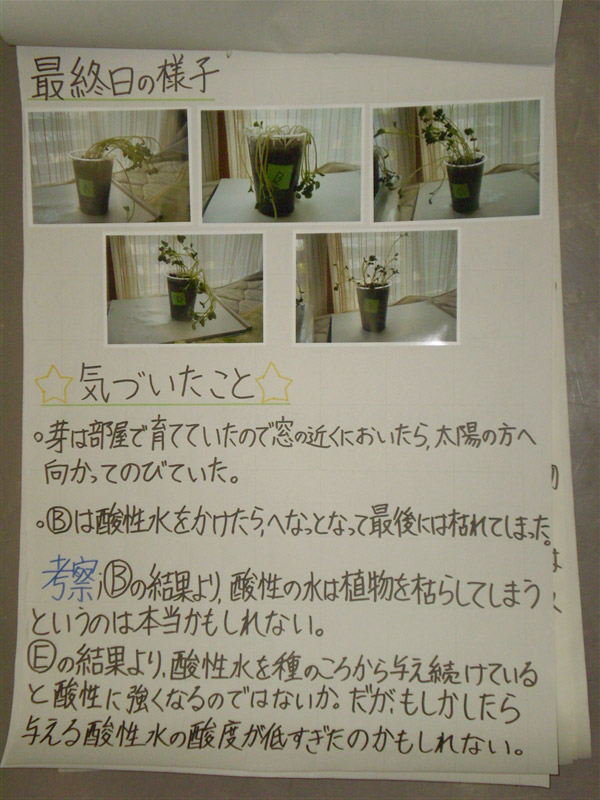 最終日の様子
B
気づいたこと
。芽は部屋で育てていたので窓の近くにおいたら、太陽の方へ
向かってのびていた。
。Ⓑは酸性水をかけたら、へなっとなって最後には枯れてしまった。
考察;Ⓑの結果より、酸性の水は植物を枯らしてしまう
というのは本当かもしれない。
Ⓔの結果より、酸性水を種のころから与え続けている
と酸性に強くなるのではないか。だが、もしかしたら
与える酸性水の酸度が低すぎたのかもしれない。